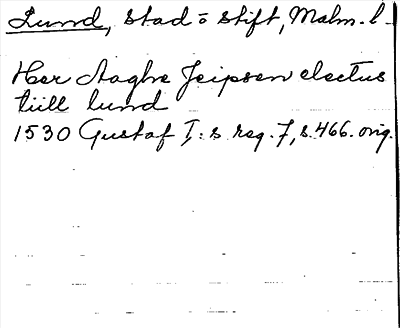 Lund, stad o stift, Malm. l.
Her Aaghe Jeipsen electus
tiill lund
1530 Gustaf I:s reg. 7, s. 466. orig.